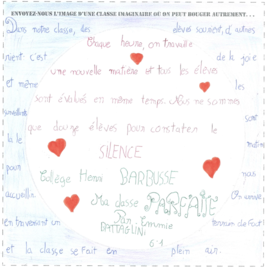 ENVOYEZ-NOUS L'IMAGE D'UNE CLASSE IMAGINAIRE OÙ ON PEUT BOUGER AUTREMENT...
Dans notre classe, les élèves sourient, d'autres
Chaque heure, on travaille
rient c'est de la joie
une nouvelle matière et tous les élèves
et même les
sont évalués en même temps. Nous ne sommes
sont
que douze élèves pour constater le
la le
SILENCE
même
pour
Collège Henri BARBUSSE
pas
accueillir On arrive
Ma classe PARFAITE
en trouvant un terrain de foot
Par: Emmie
BATTAGLINI
6°1
et la classe se fait en plein air.